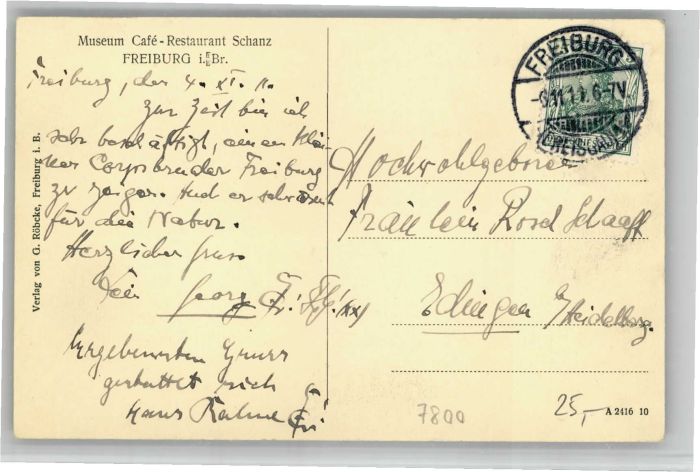 Museum Café-Restaurant Schanz
FREIBURG i. Br.
Freiburg, den 4. XI. 11.
Zur Zeit bin ich
sehr beschäftigt, einen klei-
nen Corpsbruder Freiburg
zu zeigen. Auch er schwärmt
für die Natur.
Herzlichen Gruss
Dein Georg
Ergebensten Gruss
gestattet sich
Hans
Verlag von G. Röbcke, Freiburg i. B.
FREIBURG
6-7V
(BREISGAU)
Hochwohlgeboren
Fräulein Rosel Schaaff
Edingen b/Heidelberg.
7800
25,-
A 2416 10